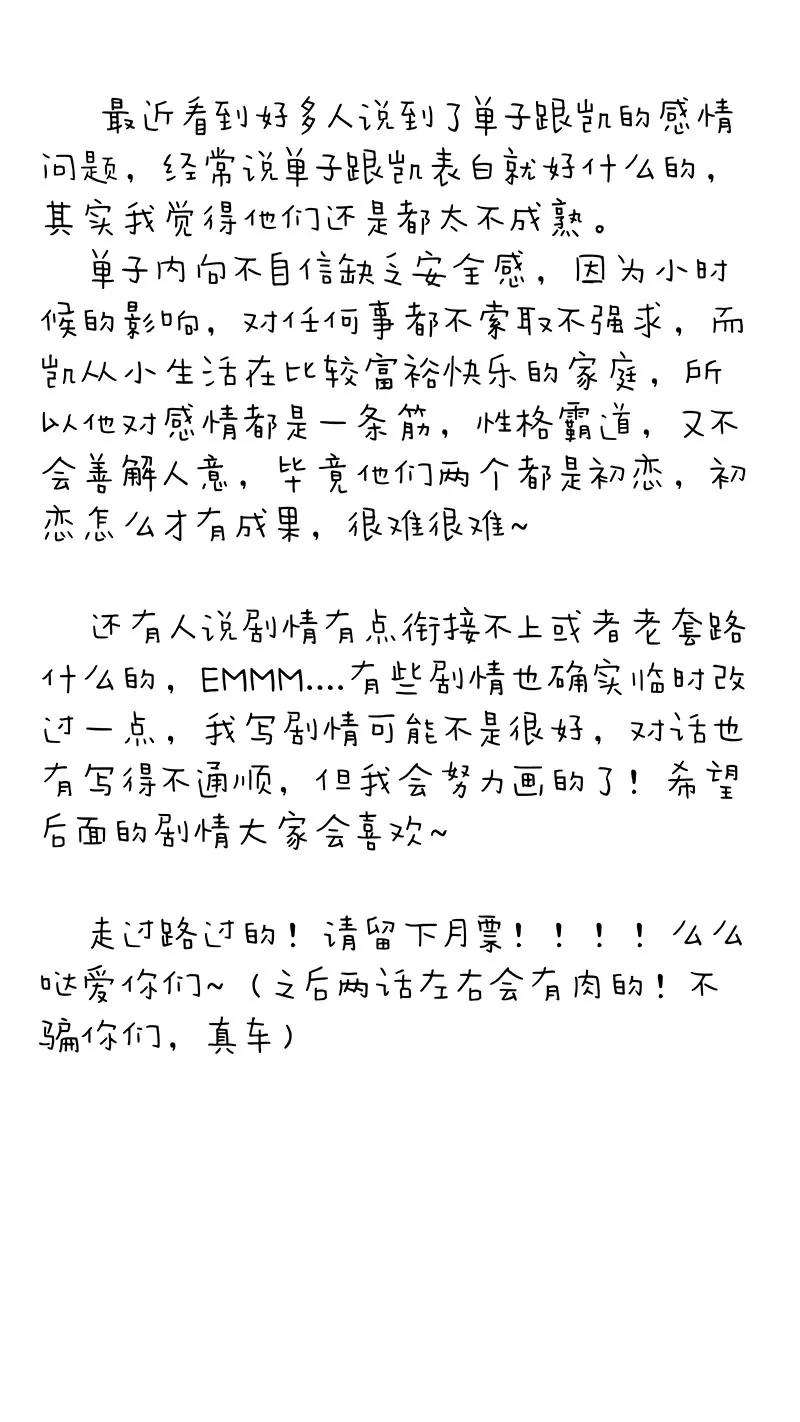 最近看到好多人说到了单子跟凯的感情
问题，经常说单子跟凯表白就好什么的，
其实我觉得他们还是都太不成熟。
单子内向不自信缺乏安全感，因为小时
候的影响，对任何事都不索取不强求，而
凯从小生活在比较富裕快乐的家庭，所
以他对感情都是一条筋，性格霸道，又不
会善解人意，毕竟他们两个都是初恋，初
恋怎么才有成果，很难很难~
还有人说剧情有点衔接不上或者老套路
什么的，EMMM....有些剧情也确实临时改
过一点，我写剧情可能不是很好，对话也
有写得不通顺，但我会努力画的了！希望
后面的剧情大家会喜欢~
走过路过的！请留下月票！！！！么么
哒爱你们~（之后两话左右会有肉的！不
骗你们，真车）